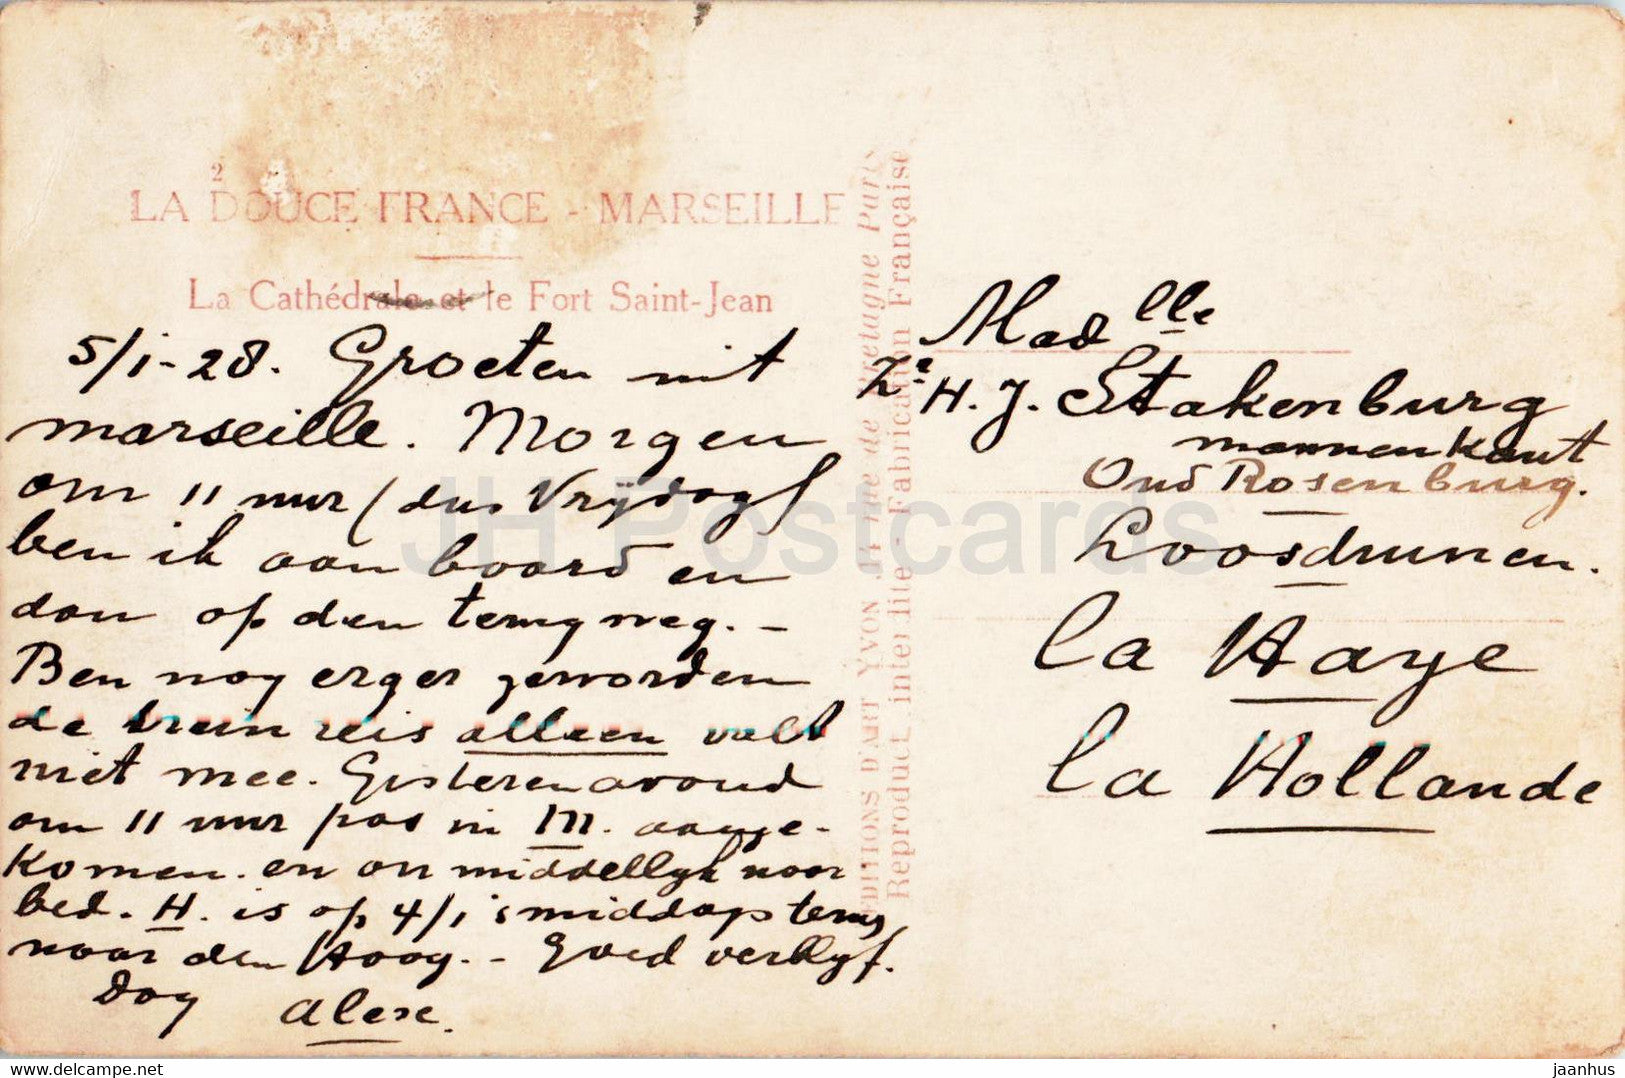 2
LA DOUCE FRANCE - MARSEILLE
La Cathédrale et le Fort Saint-Jean
5/1-28. Groeten uit
marseille. Morgen
om 11 uur (dus Vrijdag)
ben ik aan boord en
dan op den terug weg. -
Ben nog erger geworden
de trein reis alleen valt
niet mee. Gisterenavond
om 11 uur pas in M. aange-
komen. en onmiddellyk naar
bed. H. is op 4/1 's middags terug
naar den Haag. - Goed verblyf.
Dag
Alex.
EDITIONS D'ART YVON, Paris
Reproduct. interdite - Fabrication Française
Mad lle
H. J. Stakenburg
mannenkant
Oud Rosenburg.
Loosduinen.
La Haye
La Hollande
JH Postcards
www.delcampe.net
jaanhus